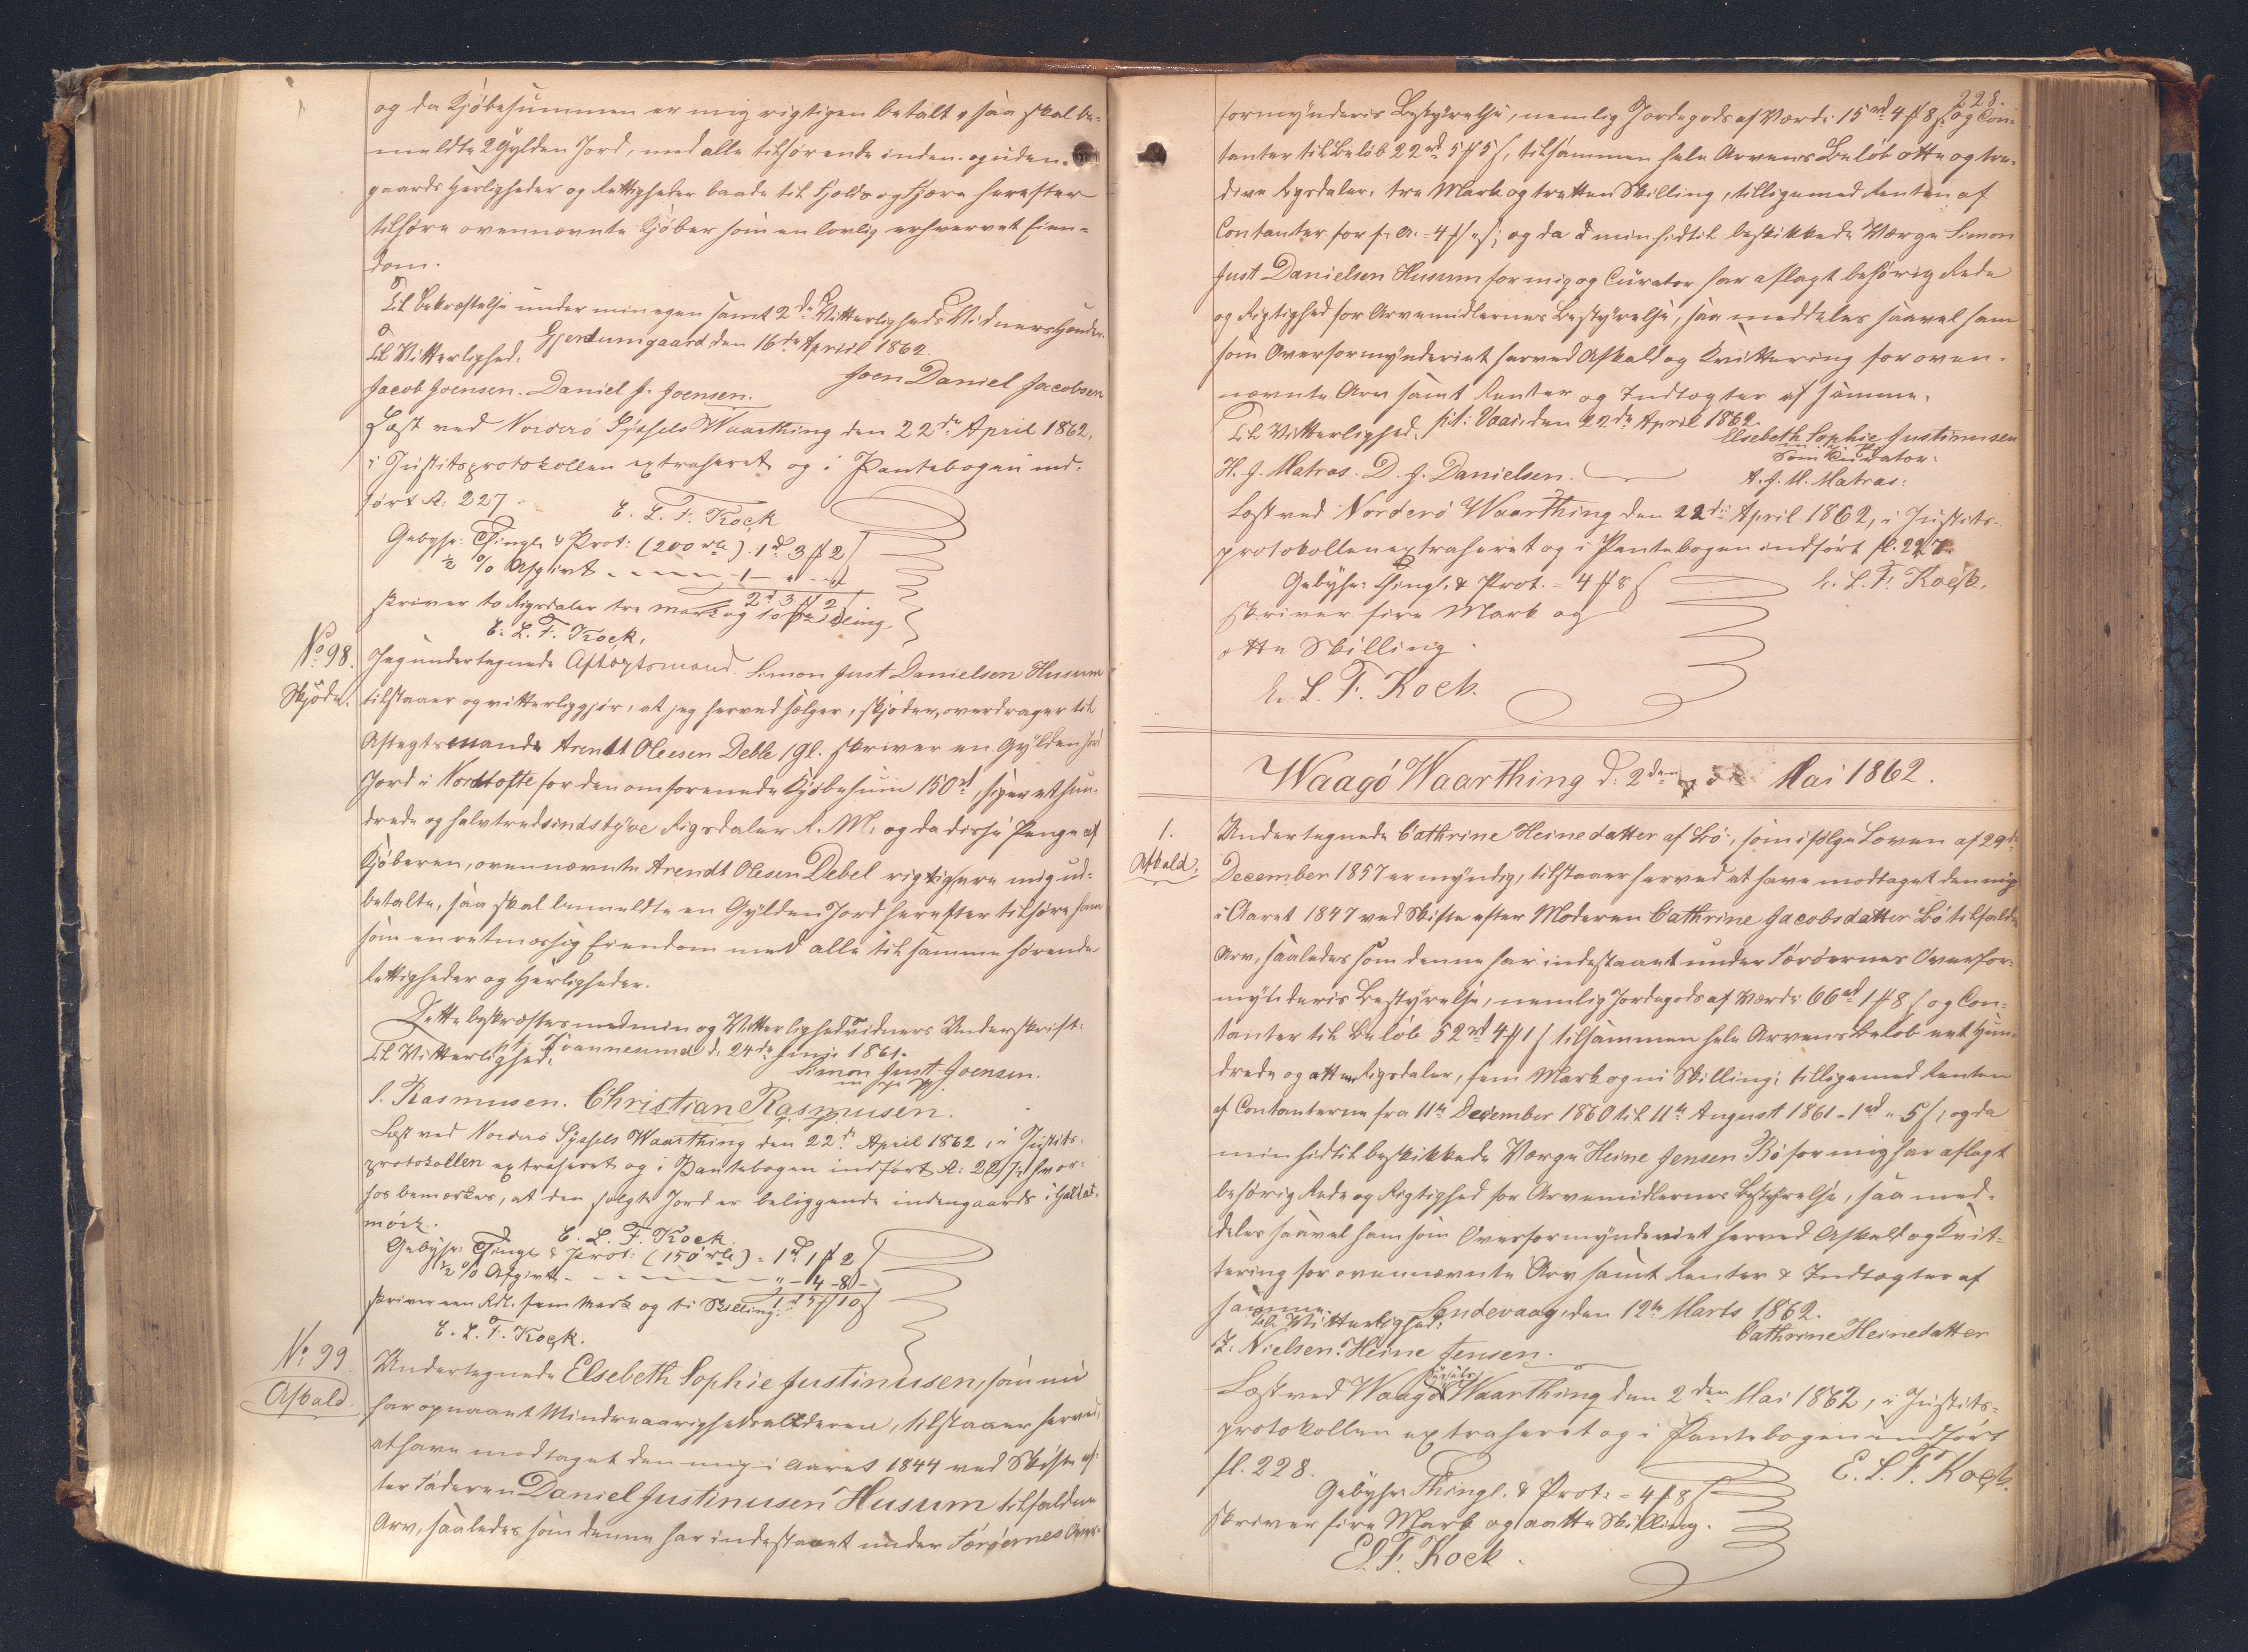 og da Kjöbesummen er mig rigtigen betalt, saa skal be-
meldte 2 Gylden Jord, med alle tilhörende inden- og uden-
gaards Herligheder og Rettigheder baade til Fjelds og Fjære herefter
tilhöre ovennævnte Kjöber som en lovlig erhvervet Eien-
dom.
Til Bekræftelse under min egen samt 2de Vitterligheds Vidners Hænder.
Gjerdumgaard den 16de April 1862.
Til Vitterlighed: Joen Daniel Jacobsen
Jacob Joensen. Daniel J. Joensen.
Læst ved Norderö Syssels Waarthing den 22de April 1862,
i Justitsprotokollen extraheret og i Pantebogen ind-
fört A: 227.
E. L. F. Kock
Gebyhr: Thingl. & Prot: (200 rdl) . 1rd 3 ß 2
½ % Afgivt - - - - 1 - " - "
2rd 3 ß 2
skriver to Rigsdaler tre Mark og to Skilling.
E. L. F. Kock.
No 98.
Skjöde.
Jeg undertegnede Aftægtsmand Simon Just Danielsen Husum
tilstaaer og vitterliggjör, at jeg herved sælger, skjöder, overdrager til
Aftægtsmand Arendt Olesen Deble 1 Gl. skriver en Gylden Jord
Jord i Nordtofte for den omforenede Kjöbesum 150rd, siger et hun-
drede og halvtredsindstyve Rigsdaler R. M. og da disse Penge af
Kjöberen, ovennævnte Arendt Olesen Debel rigtig ere mig ud-
betalte, saa skal bemeldte en Gylden Jord herefter tilhöre ham
som en retmæssig Eiendom med alle til samme hörende
Rettigheder og Herligheder.
Dette bekræftes med min og Vitterlighedsvidners Underskrift.
pt. Joannesund d: 24de Juni 1861.
Til Vitterlighed. Simon Just Joensen.
m. f. P.
S. Rasmusen. Christian Rasmusen.
Læst ved Norderö Syssels Waarthing den 22de April 1862, i Justits-
protokollen extraheret og i Pantebogen indfört A: 227; hvor-
hos bemærkes, at den solgte Jord er beliggende indengaards i Hallat-
mörk.
E. L. F. Kock.
Gebyhr: Thingl. & Prot: (150 rdl) = 1rd 1 ß 2
½ % Afgivt - - - - " - 4 - 8 -
1rd 5 ß 10
skriver een Rdl. fem Mark og ti Skilling.
E. L. F. Kock.
No 99.
Afkald.
Undertegnede Elsebeth Sophie Justinusen, som nu
har opnaaet Mindreaarighedsalderen, tilstaaer herved,
at have modtaget den mig i Aaret 1844 ved Skifte ef-
ter Faderen Daniel Justinusen Husum tilfaldne
Arv, saaledes som denne har indestaaet under Færöernes Over-
228.
formynderis Bestyrelse, nemlig Jordegods af Værdi 15rd 4 ß 8 og Con-
tanter til Belöb 22rd 5 ß 5, tilsammen hele Arvens Belöb otte og tre-
dive Rigsdaler, tre Mark og tretten Skilling, tilligemed Renten af
Contanter for f. A. = 4 ß "; og da d min hidtil beskikkede Værge Simon
Just Danielsen Husum for mig og Curator har aflagt behörig Rede
og Rigtighed for Arvemidlernes Bestyrelse, saa meddeles saavel ham
som Overformynderiet herved Afkald og Kvittering for oven-
nævnte Arv samt Renter og Indtægter af samme.
pt: Vaai, den 22de April 1862.
Til Vitterlighed. Elsebeth Sophie Justinusen
Som Curator:
H. J. Matras. D. J. Danielsen. A. J. M. Matras:
Læst ved Norderö Waarthing den 22de April 1862, i Justits-
protokollen extraheret og i Pantebogen indfört fl. 227.
Gebyhr: Thingl. & Prot. = 4 ß 8 E. L. F. Kock.
skriver fire Mark og
otte Skilling.
E. L. F. Kock.
Waagö Waarthing d: 2den Mai 1862.
1.
Afkald.
Undertegnede Cathrine Heinedatter af Bö, som ifölge Loven af 29de
December 1857 er myndig, tilstaaer herved at have modtaget den mig
i Aaret 1847 ved Skifte efter Moderen Cathrine Jacobsdatter Bö tilfaldne
Arv, saaledes som denne har indestaaet under Færöernes Overfor-
mynderis Bestyrelse, nemlig Jordegods af Værdi 66rd 1 ß 8 og Con-
tanter til Belöb 52rd 4 ß 1 tilsammen hele Arvens Belöb eet Hun-
drede og atten Rigsdaler, fem Mark og ni Skilling; tilligemed Renten
af Contanterne fra 11te December 1860 til 11te August 1861 = 1rd " 5; og da
min hidtil beskikkede Værge Heine Jensen Bö for mig har aflagt
behörig Rede og Rigtighed for Arvemidlernes Bestyrelse, saa med-
deles saavel ham som Overformynderiet herved Afkald og Kvit-
tering for ovennævnte Arv samt Renter & Indtægter af
samme.
Sandevaag, den 12te Marts 1862.
Til Vitterlighed: Cathrine Heinedatter
Z. Nielsen. Heine Jensen.
Læst ved Waagö Syssels Waarthing den 2den Mai 1862, i Justits-
protokollen extraheret og i Pantebogen indfört
fl. 228. E. L. F. Kock.
Gebyhr: Thingl. & Prot: = 4 ß 8
skriver fire Mark og aatte Skilling.
E. L. F. Kock.